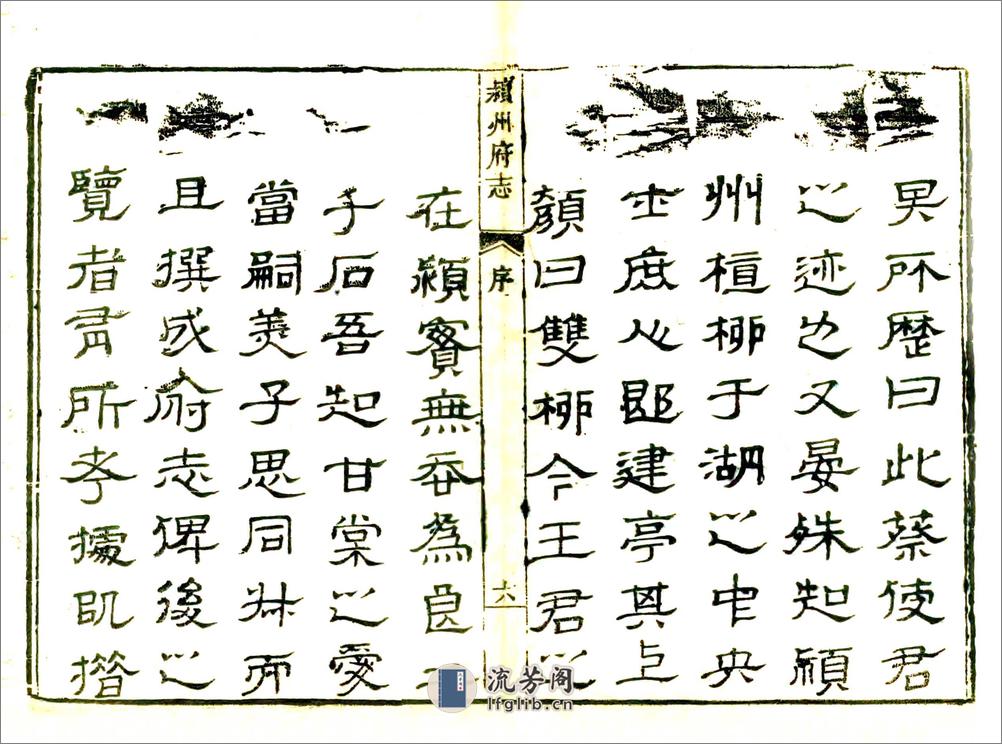 所歷曰此蔡使君
之迹也又晏殊知潁
州植柳于湖之中央
士庶心建亭其上
顏曰雙柳今王君之
潁州府志
序
六
在潁實無忝爲良二
千石吾知甘棠之愛
當嗣美子思同叔而
且撰成府志俾後之
覽者有所考據
流芳阁
lfglib.cn